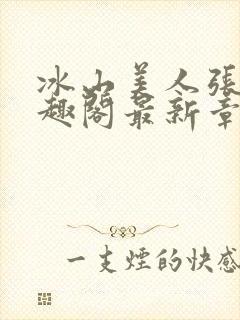 冰山美人張
趣閣最新章
一支煙的快感